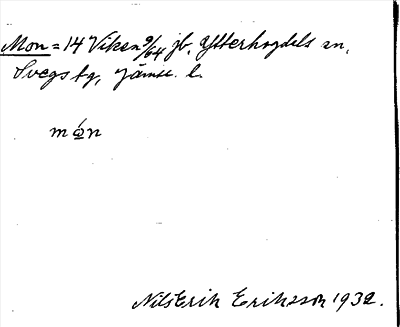 Mon = 14 Viken 9/64 jb, Ytterhogdels sn,
Svegs tg, Jämtl. l.
mώn
Nils Erik Eriksson 1932.